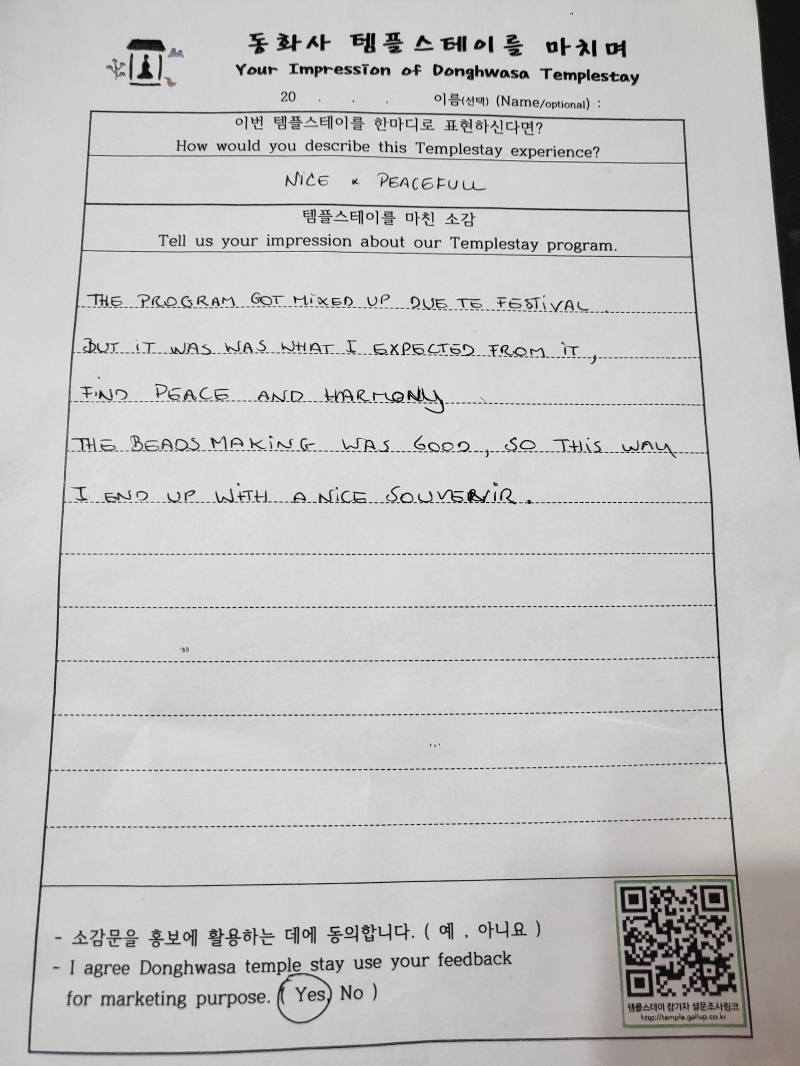 동화사 템플스테이를 마치며
Your Impression of Donghwasa Templestay
20 . . . 이름(선택) (Name/optional) :
이번 템플스테이를 한마디로 표현하신다면?
How would you describe this Templestay experience?
NICE & PEACEFULL
템플스테이를 마친 소감
Tell us your impression about our Templestay program.
THE PROGRAM GOT MIXED UP DUE TE FESTIVAL.
BUT IT WAS WAS WHAT I EXPECTED FROM IT,
FIND PEACE AND HARMONY
THE BEADS MAKING WAS GOOD, SO THIS WAY
I END UP WITH A NICE SOUVENIR.
- 소감문을 홍보에 활용하는 데에 동의합니다. ( 예 , 아니요 )
- I agree Donghwasa temple stay use your feedback
for marketing purpose. ( Yes, No )
템플스테이 참가자 설문조사링크
http://temple.gallup.co.kr